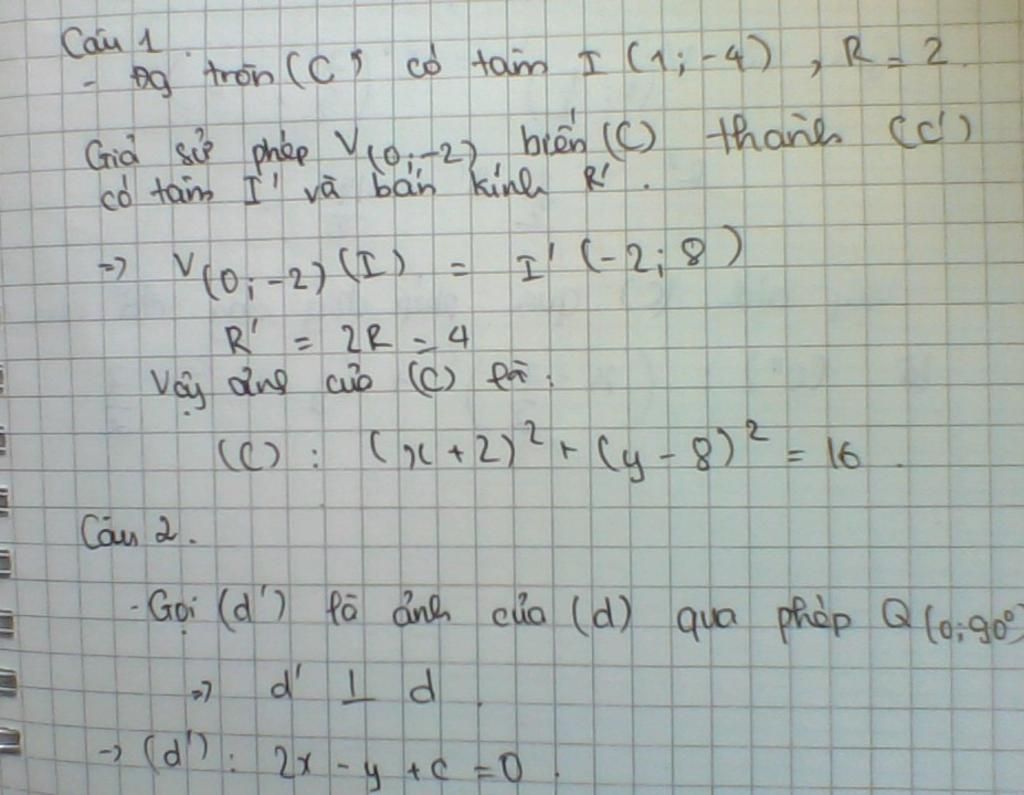 Câu 1
- Đg tròn (C) có tâm I (1;-4), R = 2.
Giả sử phép V(O;-2) biến (C) thành (C')
có tâm I' và bán kính R'.
=> V(O;-2)(I) = I'(-2;8)
R' = 2R = 4
Vậy ảnh của (C) là:
(C): (x+2)² + (y-8)² = 16.
Câu 2.
- Gọi (d') là ảnh của (d) qua phép Q(O;90°)
=> d' ⊥ d.
-> (d'): 2x - y + c = 0.